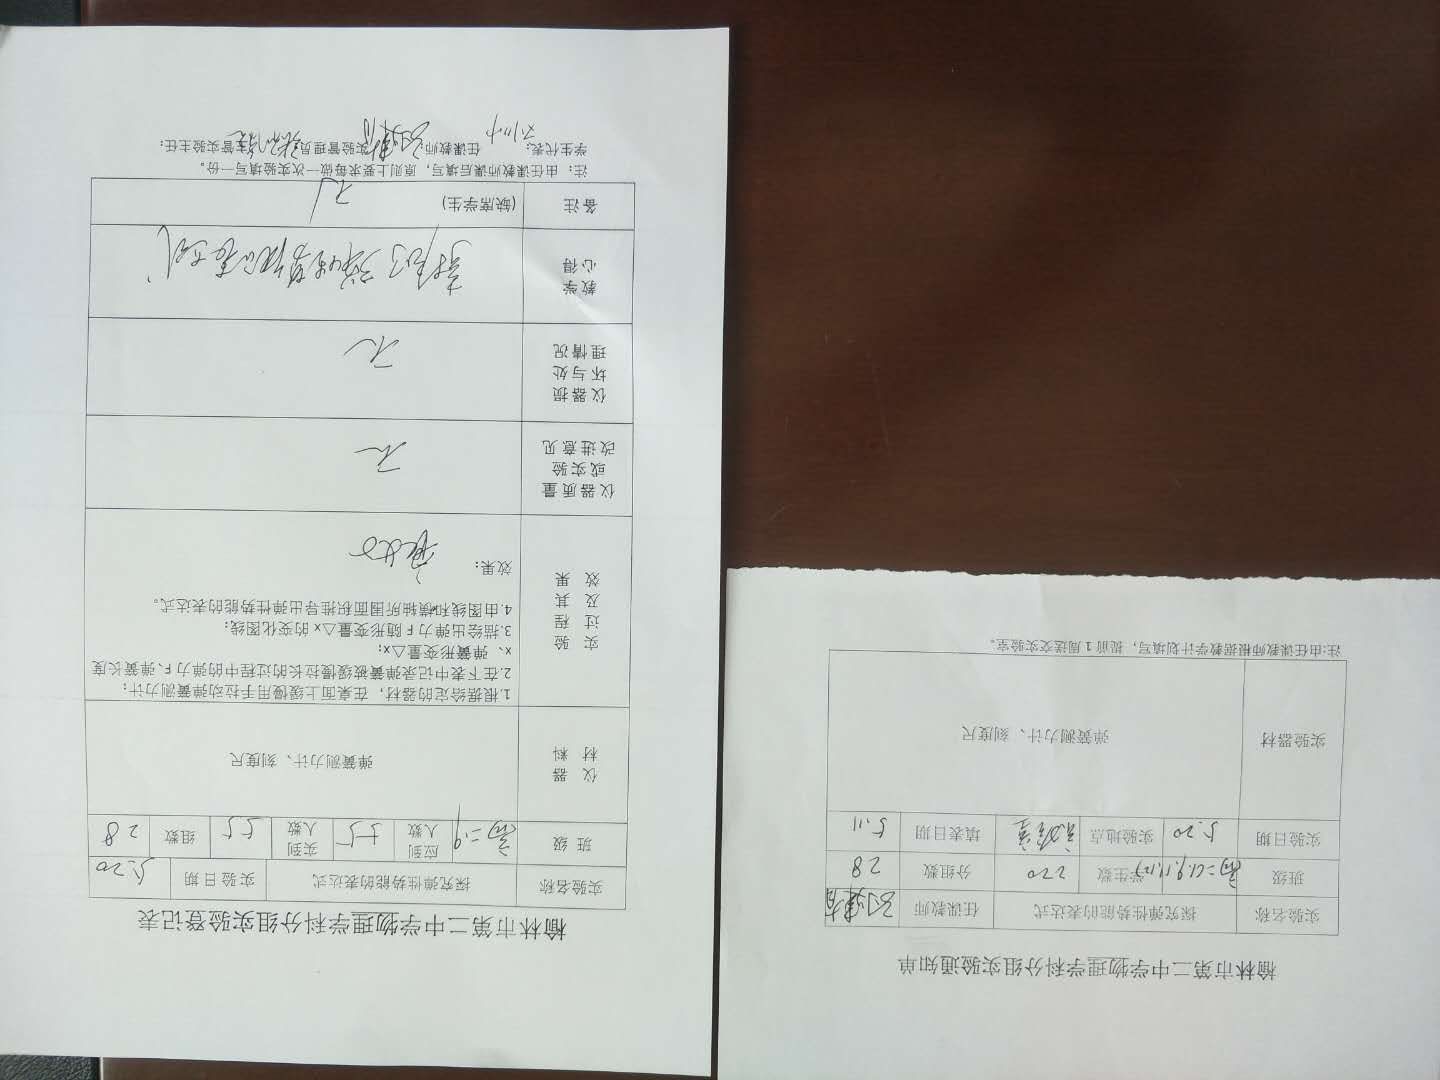 榆林市第二中学物理学科分组实验登记表
实验名称 探究弹性势能的表达式 实验日期 5.20
班级 高一.9 应到人数 55 实到人数 55 组数 28
仪器材料 弹簧测力计、刻度尺
实验过程及其效果
1.根据给定的器材，在桌面上缓慢用手拉动弹簧测力计；
2.在下表中记录弹簧被缓慢拉长的过程中的弹力 F、弹簧长度
x、弹簧形变量△x；
3.描绘出弹力 F 随形变量△x 的变化图线；
4.由图线和横轴所围面积推导出弹性势能的表达式。
效果： 良好
仪器质量或实验改进意见 无
仪器损坏与处理情况 无
教学心得
备注 (缺席学生) 无
注：由任课教师课后填写，原则上要求每做一次实验填写一份。
学生代表： 任课教师： 实验管理员： 主管实验主任：
榆林市第二中学物理学科分组实验通知单
实验名称 探究弹性势能的表达式 任课教师
班级 学生数 220 分组数 28
实验日期 5.20 实验地点 实验室 填表日期 5.11
实验器材 弹簧测力计、刻度尺
注:由任课教师根据教学计划填写，提前 1 周送交实验室。